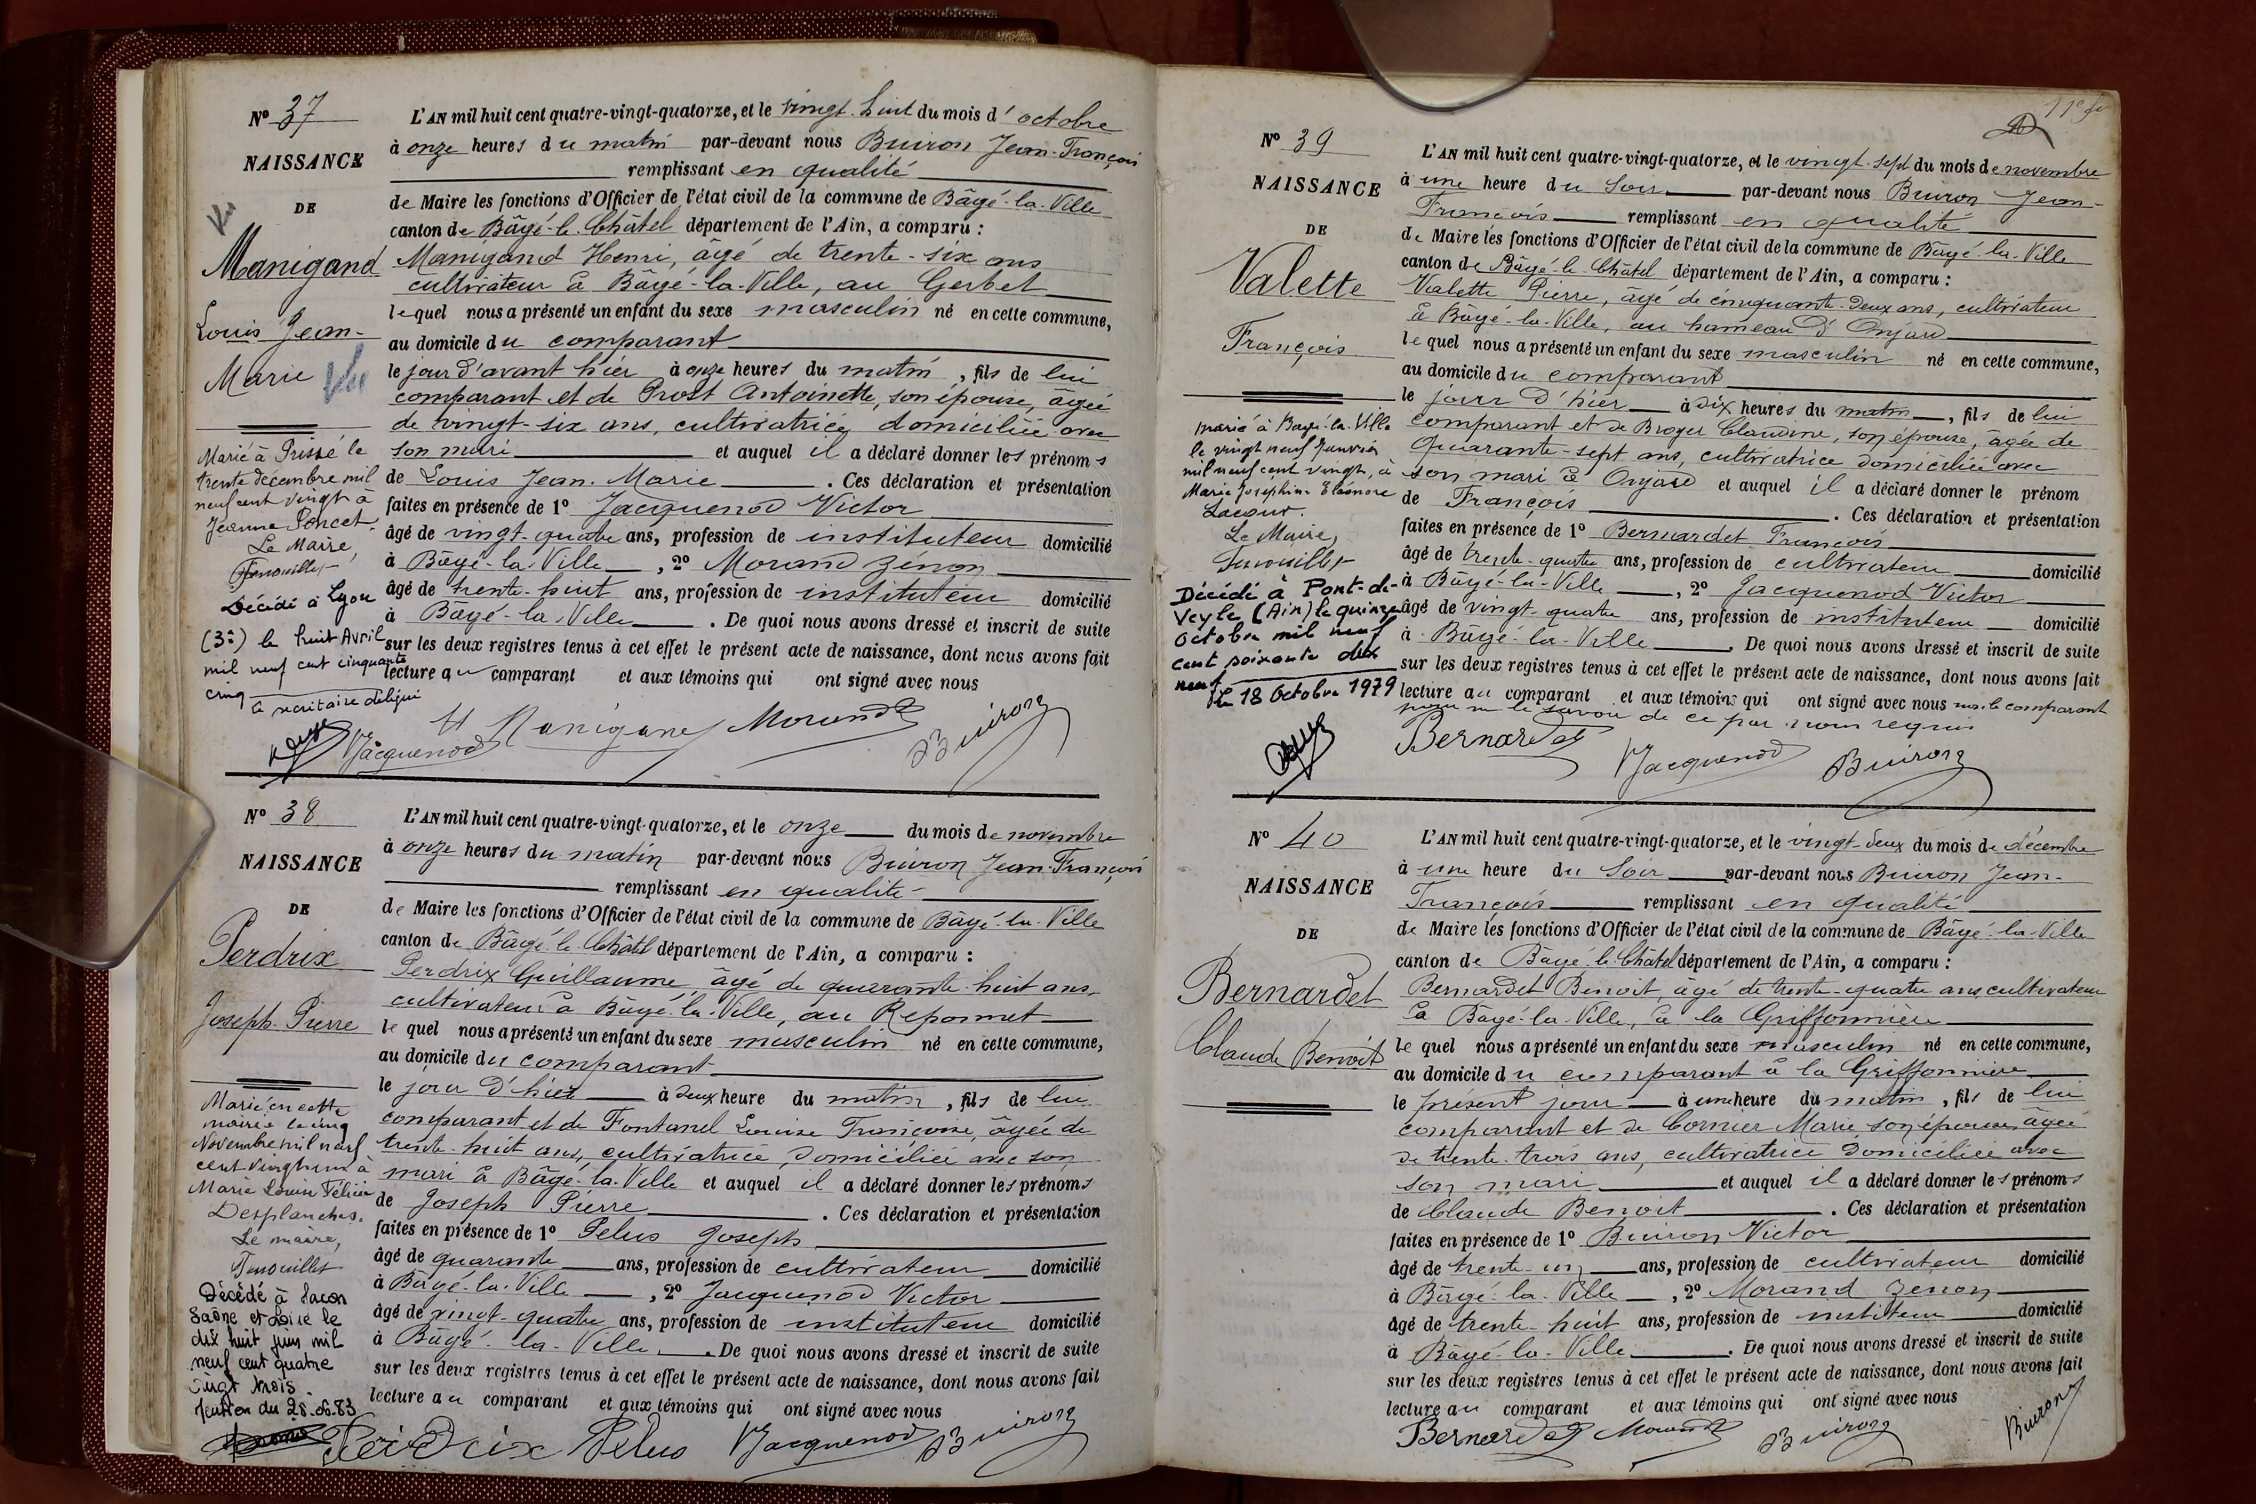 Nº 37
NAISSANCE
DE
Vu
Manigand
Louis Jean-
Marie
Vu
Marié à Prissé le
trente décembre mil
neuf cent vingt à
Jeanne Poncet.
Le Maire,
Fenouillet
Décédé à Lyon
(3e) le huit Avril
mil neuf cent cinquante
cinq
Le secrétaire délégué
L'AN mil huit cent quatre-vingt-quatorze, et le vingt-huit du mois d'octobre
à onze heures du matin par-devant nous Buiron Jean-François
remplissant en qualité
de Maire les fonctions d'Officier de l'état civil de la commune de Bâgé-la-Ville
canton de Bâgé-le-Châtel département de l'Ain, a comparu :
Manigand Henri, âgé de trente-six ans
cultivateur à Bâgé-la-Ville, au Gerbet
lequel nous a présenté un enfant du sexe masculin né en cette commune,
au domicile du comparant
le jour d'avant hier à onze heures du matin, fils de lui
comparant et de Prost Antoinette, son épouse, âgée
de vingt-six ans, cultivatrice, domiciliée avec
son mari et auquel il a déclaré donner les prénoms
de Louis Jean-Marie . Ces déclaration et présentation
faites en présence de 1º Jacquenod Victor
âgé de vingt-quatre ans, profession de instituteur domicilié
à Bâgé-la-Ville , 2º Morand Zénon
âgé de trente-huit ans, profession de instituteur domicilié
à Bâgé-la-Ville . De quoi nous avons dressé et inscrit de suite
sur les deux registres tenus à cet effet le présent acte de naissance, dont nous avons fait
lecture au comparant et aux témoins qui ont signé avec nous
H Manigand Morand Buiron
Jacquenod
Nº 38
NAISSANCE
DE
Perdrix
Joseph-Pierre
Marié en cette
mairie le cinq
Novembre mil neuf
cent vingt un à
Marie Louise Félicie
Desplanches.
Le maire,
Fenouillet
Décédé à Macon
Saône et Loire le
dix huit juin mil
neuf cent quatre
vingt trois.
Mention du 28.06.83
L'AN mil huit cent quatre-vingt-quatorze, et le onze du mois de novembre
à onze heures du matin par-devant nous Buiron Jean-François
remplissant en qualité
de Maire les fonctions d'Officier de l'état civil de la commune de Bâgé-la-Ville
canton de Bâgé-le-Châtel département de l'Ain, a comparu :
Perdrix Guillaume, âgé de quarante-huit ans,
cultivateur à Bâgé-la-Ville, au Reponnet
lequel nous a présenté un enfant du sexe masculin né en cette commune,
au domicile du comparant
le jour d'hier à deux heure du matin, fils de lui
comparant et de Fontanel Louise Françoise, âgée de
trente-huit ans, cultivatrice, domiciliée avec son
mari à Bâgé-la-Ville et auquel il a déclaré donner les prénoms
de Joseph Pierre . Ces déclaration et présentation
faites en présence de 1º Pelus Joseph
âgé de quarante ans, profession de cultivateur domicilié
à Bâgé-la-Ville , 2º Jacquenod Victor
âgé de vingt-quatre ans, profession de instituteur domicilié
à Bâgé-la-Ville . De quoi nous avons dressé et inscrit de suite
sur les deux registres tenus à cet effet le présent acte de naissance, dont nous avons fait
lecture au comparant et aux témoins qui ont signé avec nous
Perdrix Pelus Jacquenod Buiron
11e
Nº 39
NAISSANCE
DE
Valette
François
Marié à Bagé-la-Ville
le vingt neuf Janvier
mil neuf cent vingt, à
Marie Joséphine Eléonore
Lacour.
Le Maire,
Fenouillet
Décédé à Pont-de-
Veyle (Ain) le quinze
octobre mil neuf
cent soixante dix
neuf
Le 18 Octobre 1979
L'AN mil huit cent quatre-vingt-quatorze, et le vingt-sept du mois de novembre
à une heure du soir par-devant nous Buiron Jean-
François remplissant en qualité
de Maire les fonctions d'Officier de l'état civil de la commune de Bâgé-la-Ville
canton de Bâgé-le-Châtel département de l'Ain, a comparu :
Valette Pierre, âgé de cinquante-deux ans, cultivateur
à Bâgé-la-Ville, au hameau d'Onjard
lequel nous a présenté un enfant du sexe masculin né en cette commune,
au domicile du comparant
le jour d'hier à dix heures du matin, fils de lui
comparant et de Broyer Claudine, son épouse, âgée de
quarante-sept ans, cultivatrice domiciliée avec
son mari à Onjard et auquel il a déclaré donner le prénom
de François . Ces déclaration et présentation
faites en présence de 1º Bernardet François
âgé de trente-quatre ans, profession de cultivateur domicilié
à Bâgé-la-Ville , 2º Jacquenod Victor
âgé de vingt-quatre ans, profession de instituteur domicilié
à Bâgé-la-Ville . De quoi nous avons dressé et inscrit de suite
sur les deux registres tenus à cet effet le présent acte de naissance, dont nous avons fait
lecture au comparant et aux témoins qui ont signé avec nous non le comparant
pour ne le savoir de ce par nous requis
Bernardet Jacquenod Buiron
Nº 40
NAISSANCE
DE
Bernardet
Claude Benoît
L'AN mil huit cent quatre-vingt-quatorze, et le vingt-deux du mois de décembre
à une heure du soir par-devant nous Buiron Jean-
François remplissant en qualité
de Maire les fonctions d'Officier de l'état civil de la commune de Bâgé-la-Ville
canton de Bâgé-le-Châtel département de l'Ain, a comparu :
Bernardet Benoit, âgé de trente-quatre ans, cultivateur
à Bâgé-la-Ville, à la Griffonnière
lequel nous a présenté un enfant du sexe masculin né en cette commune,
au domicile du comparant à la Griffonnière
le présent jour à une heure du matin, fils de lui
comparant et de Cornier Marie son épouse, âgée
de trente-trois ans, cultivatrice domiciliée avec
son mari et auquel il a déclaré donner les prénoms
de Claude Benoit . Ces déclaration et présentation
faites en présence de 1º Buiron Victor
âgé de trente-un ans, profession de cultivateur domicilié
à Bâgé-la-Ville , 2º Morand Zénon
âgé de trente-huit ans, profession de instituteur domicilié
à Bâgé-la-Ville . De quoi nous avons dressé et inscrit de suite
sur les deux registres tenus à cet effet le présent acte de naissance, dont nous avons fait
lecture au comparant et aux témoins qui ont signé avec nous
Bernardet Morand Buiron Buiron